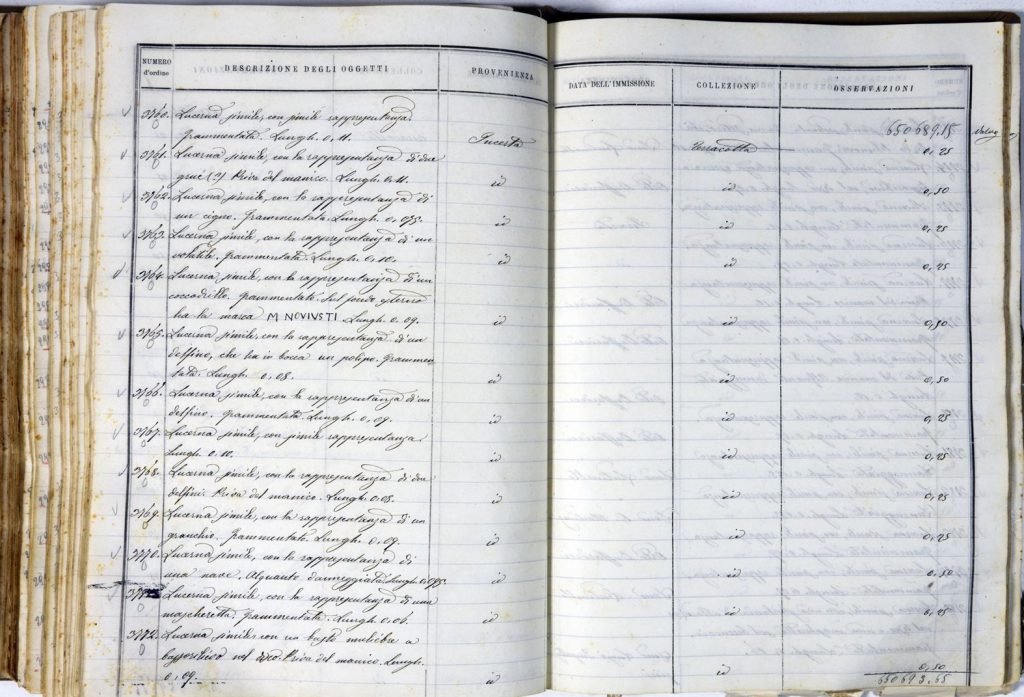 NUMERO d'ordine
DESCRIZIONE DEGLI OGGETTI
PROVENIENZA
DATA DELL'IMMISSIONE
COLLEZIONE
OSSERVAZIONI
650689.15
3760. Lucerna simile, con simile rappresentanza.
Frammentata. Lungh. 0,11. Incerta Terracotta 0,25
3761. Lucerna simile, con la rappresentanza di due
grue (?) Priva del manico. Lungh. 0,11. id id 0,50
3762. Lucerna simile, con la rappresentanza di
un cigno. Frammentata. Lungh. 0,075. id id 0,25
3763. Lucerna simile, con la rappresentanza di un
volatile. Frammentata. Lungh. 0,10. id id 0,25
3764. Lucerna simile, con la rappresentanza di un
coccodrillo. Frammentata. Sul fondo esterno
ha la marca M NOVIUSTI. Lungh. 0,09. id id 0,50
3765. Lucerna simile, con la rappresentanza di un
delfino, che ha in bocca un polipo. Frammen-
tata. Lungh. 0,08. id id 0,50
3766. Lucerna simile, con la rappresentanza di un
delfino. Frammentata. Lungh. 0,09. id id 0,25
3767. Lucerna simile, con simile rappresentanza
Lungh. 0,10. id id 0,25
3768. Lucerna simile, con la rappresentanza di due
delfini. Priva del manico. Lungh. 0,08. id id 0,25
3769. Lucerna simile, con la rappresentanza di un
granchio. Frammentata. Lungh. 0,09. id id 0,25
3770. Lucerna simile, con la rappresentanza di
una nave. Alquanto danneggiata. Lungh. 0,095. id id 0,50
Lucerna simile, con la rappresentanza di una
mascheretta. Frammentata. Lungh. 0,06. id id 0,25
3772. Lucerna simile, con un busto muliebre a
bassorilievo nel disco. Priva del manico. Lungh.
0,09. id id 0,50
650693.65